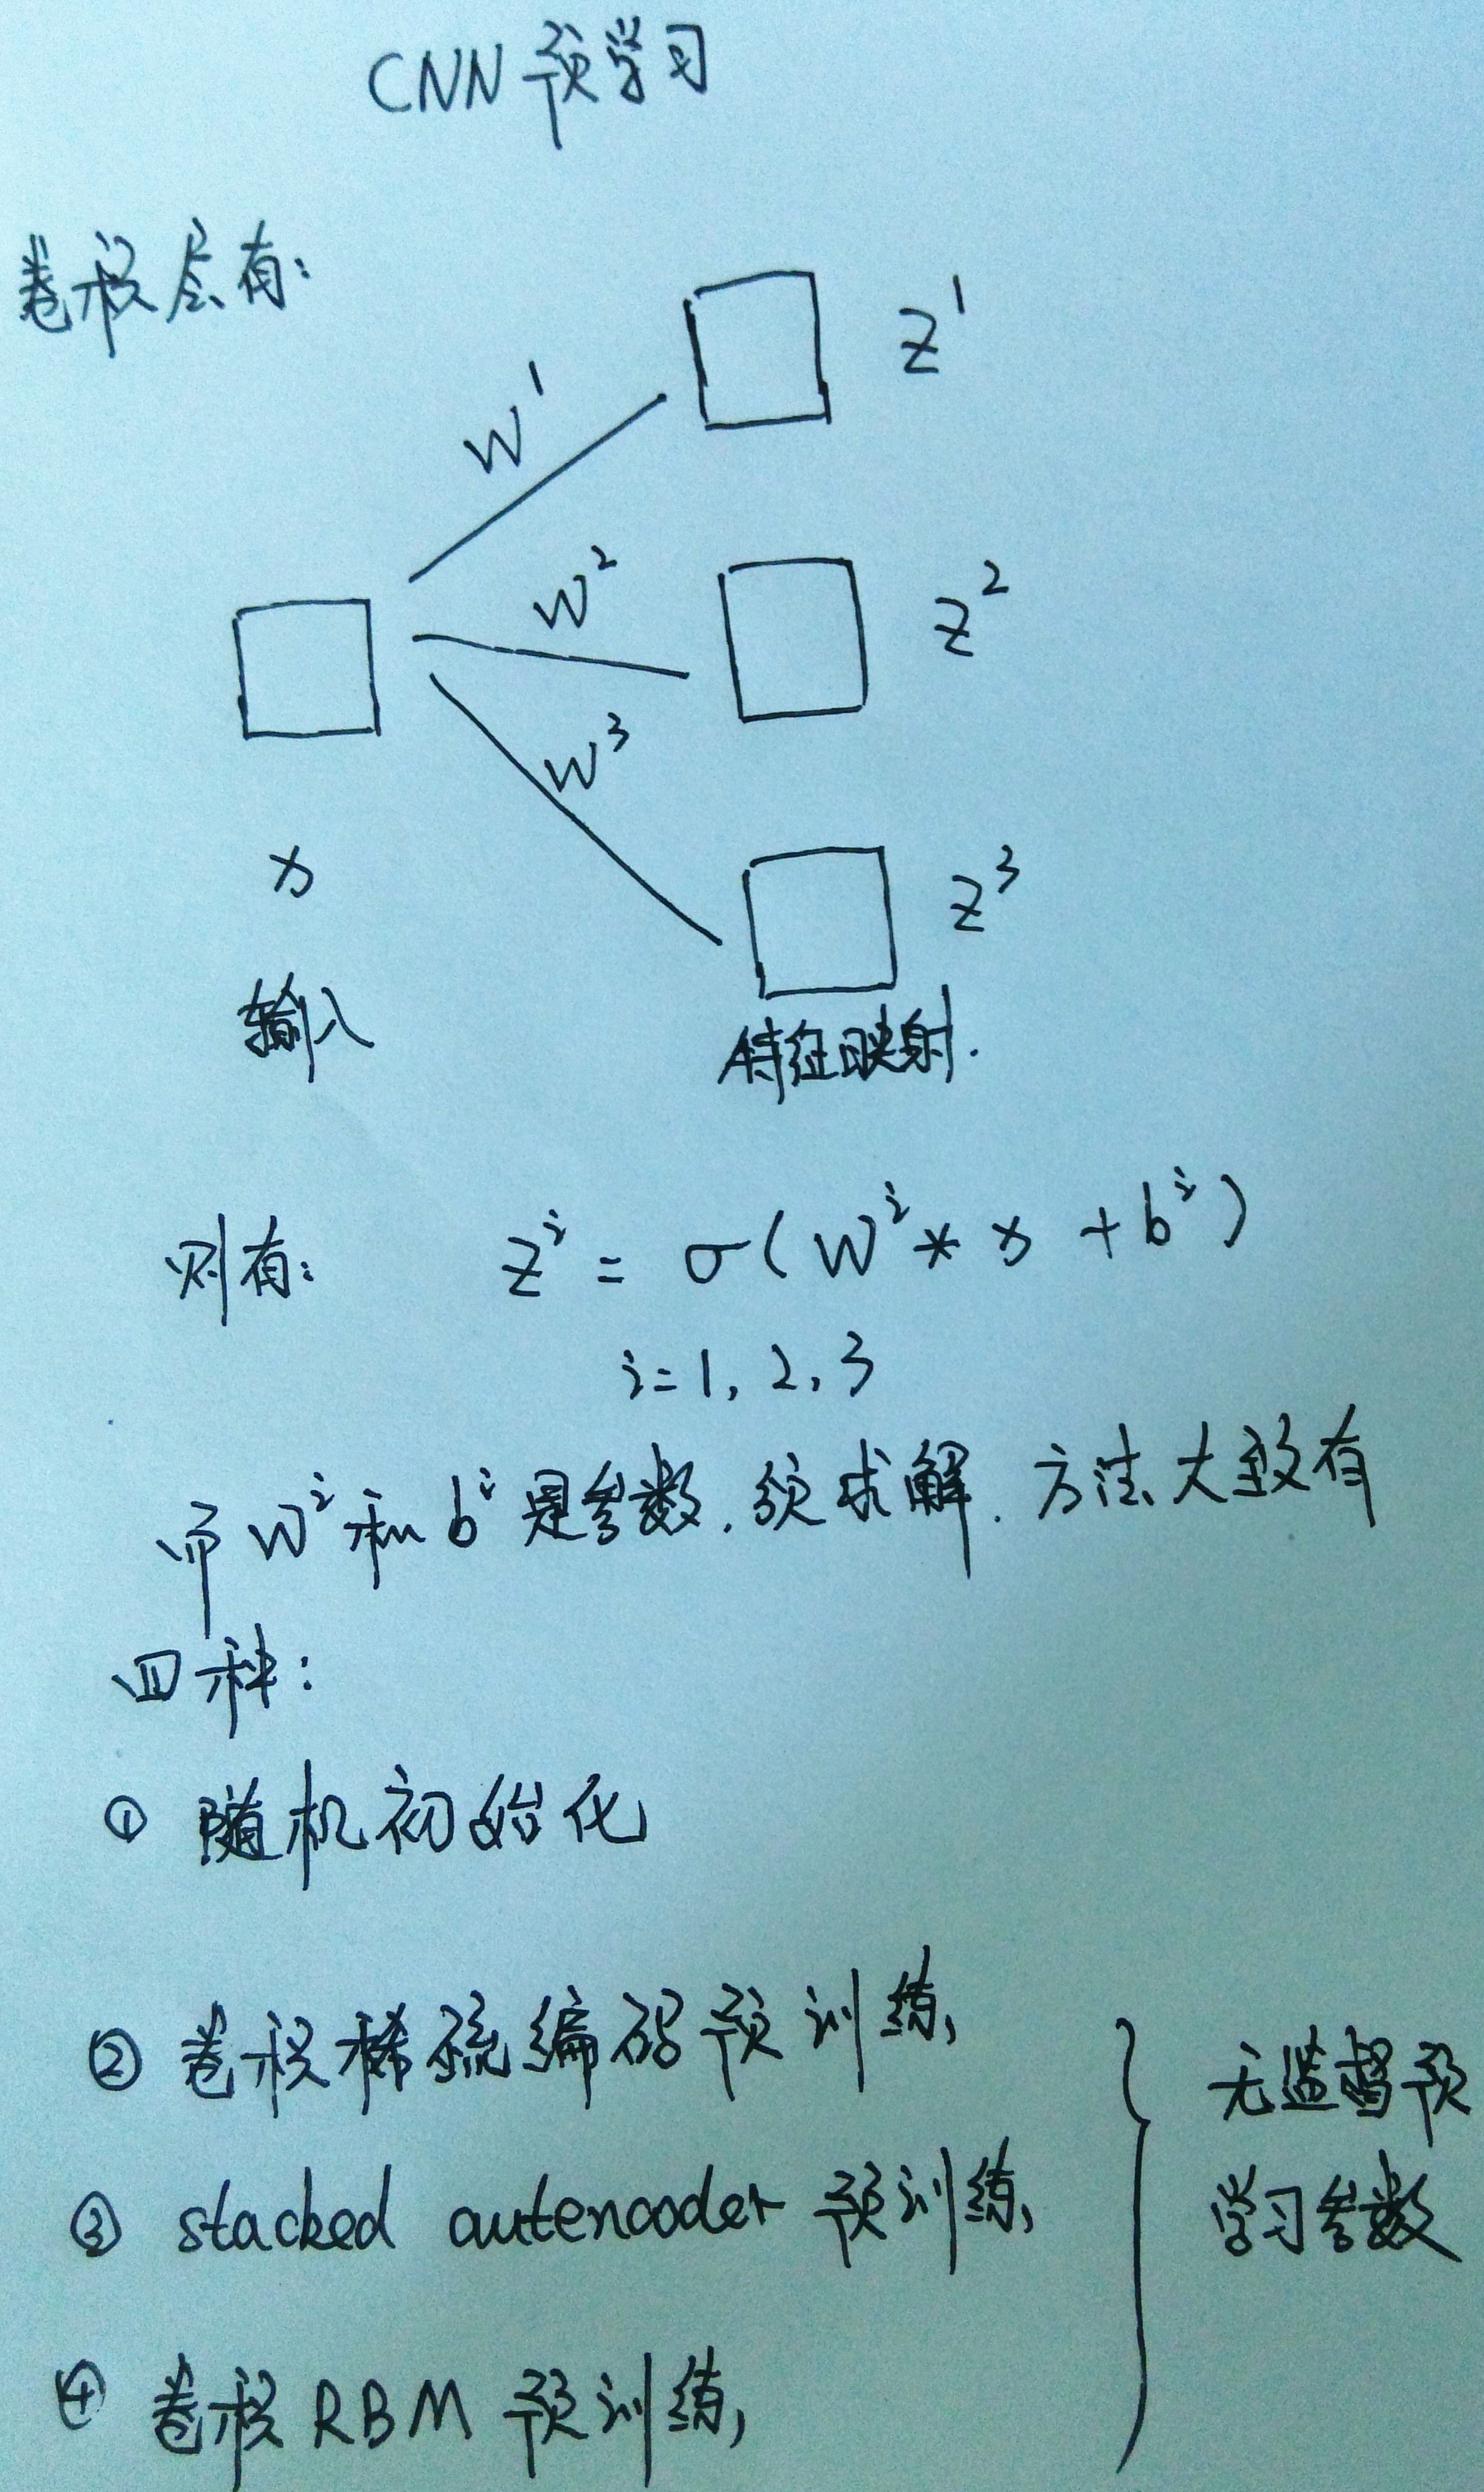 CNN 预学习
卷积层有:
W¹
z¹
W²
z²
W³
z³
x
输入
特征映射.
则有: zⁱ = σ(Wⁱ * x + bⁱ)
i=1, 2, 3
而 Wⁱ 和 bⁱ 是参数. 须求解. 方法大致有
四种:
① 随机初始化
② 卷积稀疏编码预训练,
③ stacked autencoder 预训练,
④ 卷积 RBM 预训练,
无监督预
学习参数